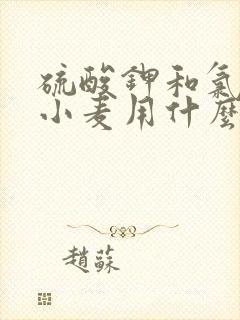 硫酸鉀和氯
小麦用什麼
趙蘇